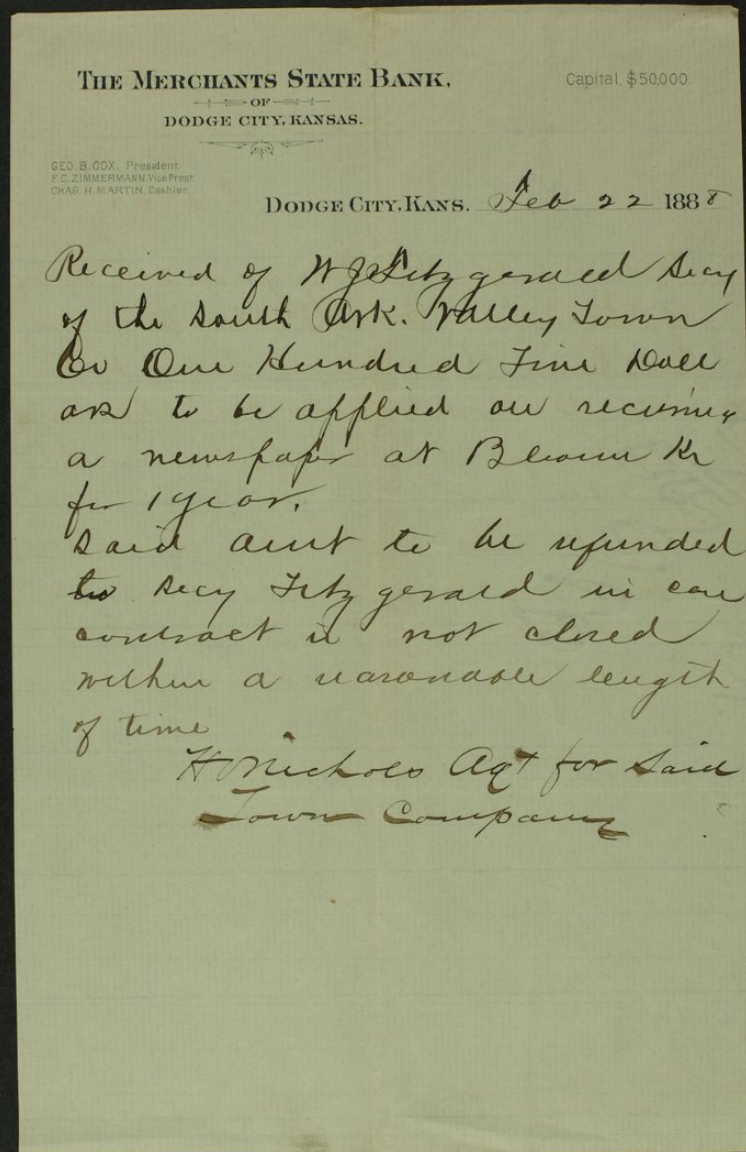 THE MERCHANTS STATE BANK,
OF
DODGE CITY, KANSAS.
Capital, $50,000.
GEO. B. COX, President.
F. C. ZIMMERMANN, Vice Prest.
CHAS. H. MARTIN, Cashier.
DODGE CITY, KANS. Feb 22 1888
Received of W J Fitzgerald Secy
of the South Ark. Valley Town
Co One Hundred Five Doll
ars to be applied on securing
a newspaper at Bloom Ks
for 1 year.
Said amt to be refunded
to Secy Fitzgerald in case
contract is not closed
within a reasonable length
of time
H Nichols Agt for Said
Town Company